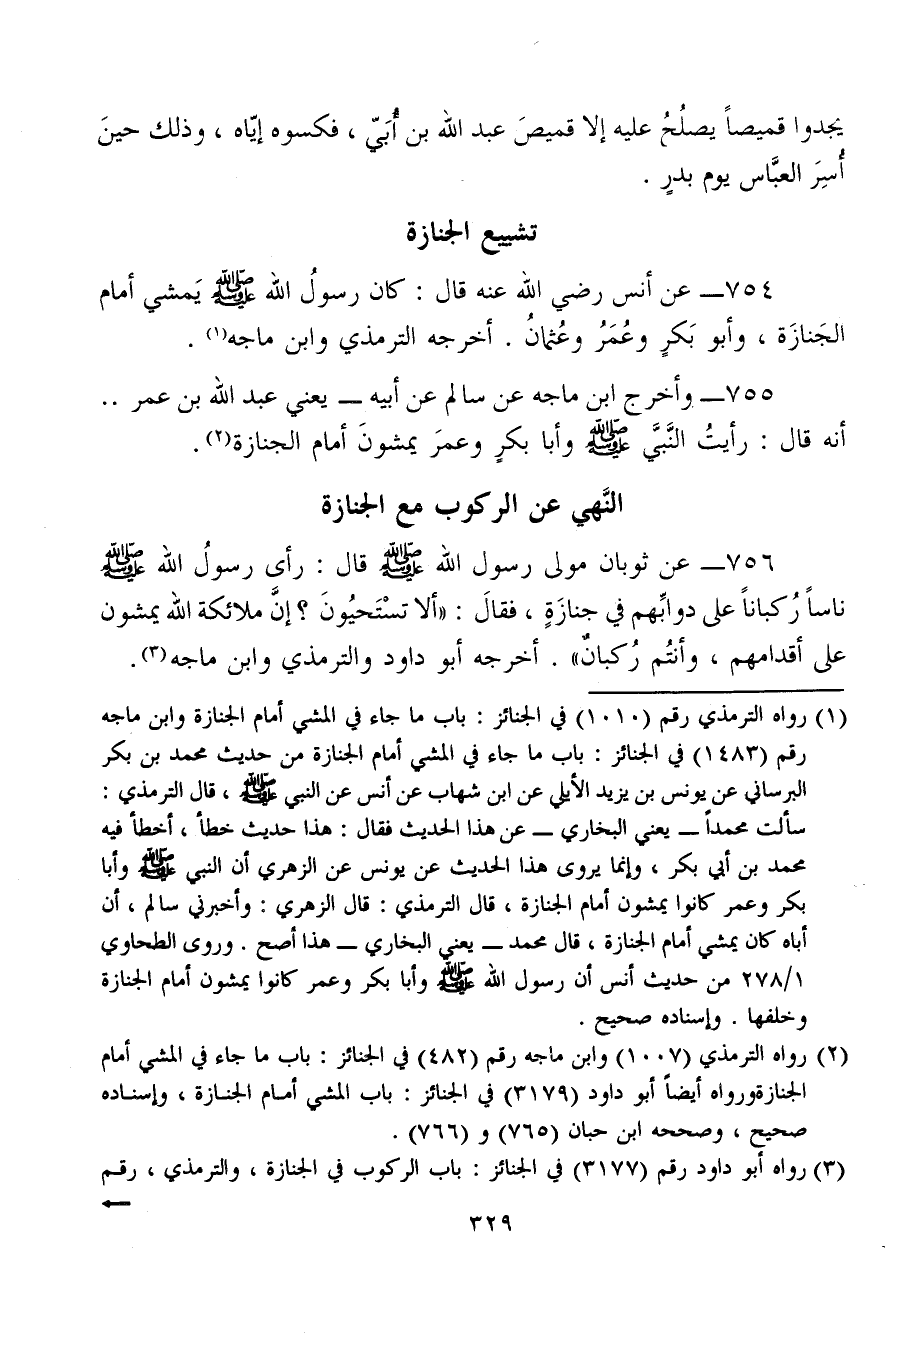 يجدوا قميصاً يصلُحُ عليه إلا قميصَ عبد الله بن أُبَيّ ، فكسوه إيّاه ، وذلك حينَ
أُسِرَ العبَّاس يوم بدرٍ .
تشييع الجنازة
٧٥٤ــ عن أنس رضي الله عنه قال : كان رسولُ الله ﷺ يَمشي أمام
الجَنازَة ، وأبو بَكرٍ وعُمَرُ وعُثمانُ . أخرجه الترمذي وابن ماجه(١) .
٧٥٥ــ وأخرج ابن ماجه عن سالم عن أبيه ــ يعني عبد الله بن عمر ..
أنه قال : رأيتُ النَّبيَّ ﷺ وأبا بكرٍ وعمرَ يمشونَ أمام الجنازة(٢) .
النَّهي عن الركوب مع الجنازة
٧٥٦ــ عن ثوبان مولى رسول الله ﷺ قال : رأى رسولُ الله ﷺ
ناساً رُكباناً على دوابِّهم في جنازةٍ ، فقالَ : «ألا تستْحيُونَ ؟ إنَّ ملائكة الله يمشون
على أقدامهم ، وأنتُم رُكبانٌ» . أخرجه أبو داود والترمذي وابن ماجه(٣) .
(١) رواه الترمذي رقم (١٠١٠) في الجنائز : باب ما جاء في المشي أمام الجنازة وابن ماجه
رقم (١٤٨٣) في الجنائز : باب ما جاء في المشي أمام الجنازة من حديث محمد بن بكر
البرساني عن يونس بن يزيد الأيلي عن ابن شهاب عن أنس عن النبي ﷺ ، قال الترمذي :
سألت محمداً ــ يعني البخاري ــ عن هذا الحديث فقال : هذا حديث خطأ ، أخطأ فيه
محمد بن أبي بكر ، وإنما يروى هذا الحديث عن يونس عن الزهري أن النبي ﷺ وأبا
بكر وعمر كانوا يمشون أمام الجنازة ، قال الترمذي : قال الزهري : وأخبرني سالم ، أن
أباه كان يمشي أمام الجنازة ، قال محمد ــ يعني البخاري ــ هذا أصح . وروى الطحاوي
٢٧٨/١ من حديث أنس أن رسول الله ﷺ وأبا بكر وعمر كانوا يمشون أمام الجنازة
وخلفها . وإسناده صحيح .
(٢) رواه الترمذي (١٠٠٧) وابن ماجه رقم (٤٨٢) في الجنائز : باب ما جاء في المشي أمام
الجنازةورواه أيضاً أبو داود (٣١٧٩) في الجنائز : باب المشي أمام الجنازة ، وإسناده
صحيح ، وصححه ابن حبان (٧٦٥) و (٧٦٦) .
(٣) رواه أبو داود رقم (٣١٧٧) في الجنائز : باب الركوب في الجنازة ، والترمذي ، رقم
←
٣٢٩